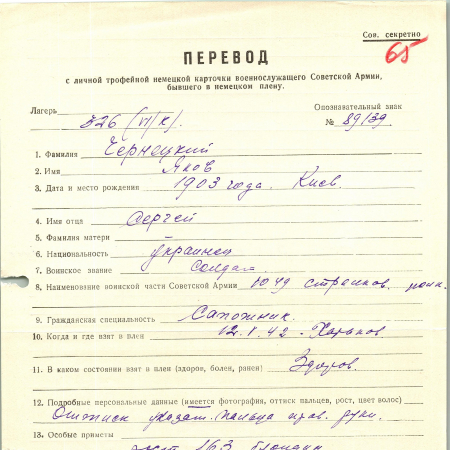 Сов. секретно
65
ПЕРЕВОД
с личной трофейной немецкой карточки военнослужащего Советской Армии,
бывшего в немецком плену.
Лагерь 326 (VI/К). Опознавательный знак
№ 89139
1. Фамилия Чернецкий
2. Имя Яков
3. Дата и место рождения 1903 года. Киев.
4. Имя отца Сергей
5. Фамилия матери
6. Национальность украинец
7. Воинское звание солдат
8. Наименование воинской части Советской Армии 1049 стрелков. полк.
9. Гражданская специальность Сапожник.
10. Когда и где взят в плен 12.V.42 - Харьков
11. В каком состоянии взят в плен (здоров, болен, ранен) Здоров.
12. Подробные персональные данные (имеется фотография, оттиск пальцев, рост, цвет волос)
Оттиск указат. пальца прав. руки.
13. Особые приметы
рост 163 блондин